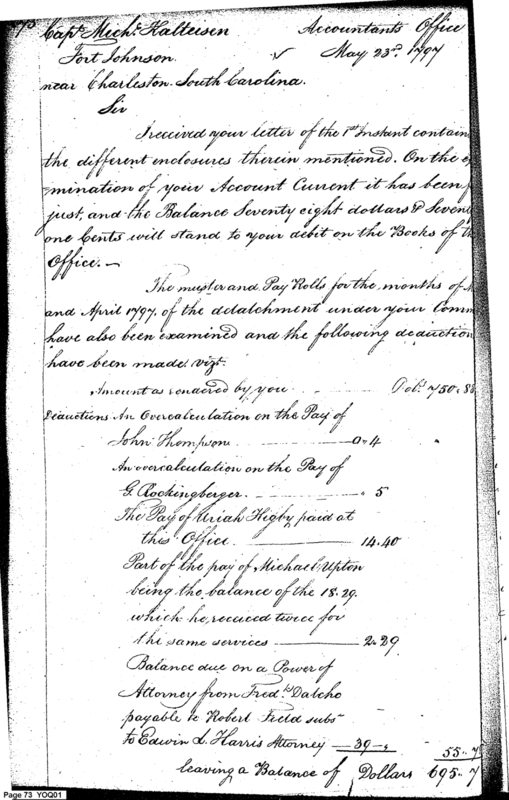 73
Capt. Michl. Kalteisen Accountants Office
Fort Johnson. May 23d. 1797
near Charleston. South Carolina.
Sir
I received your letter of the 1st Instant contain
the different enclosures therein mentioned. On the
mination of your Account Current it has been
just, and the Balance Seventy eight dollars & Seven
one Cents will stand to your debit on the Books of th
Office.—
The muster and Pay Rolls for the months of
and April 1797. of the detachment under your Comm
have also been examined and the following deduction
have been made vizt.
Amount as rendered by you Dols. 750.8
Deductions An Overcalculation on the Pay of
John Thompson 0.4
An overcalculation on the Pay of
G. Rockingberger. " 5
The Pay of Uriah Higby paid at
this Office 14.40
Part of the pay of Michael Upton
being the balance of the 18.29.
which he received twice for
the same services 2.29
Balance due on a Power of
Attorney from Fredk. Dalcho
payable to Robert Field subs
to Edwin L. Harris Attorney 39 "
55.. 7
leaving a Balance of Dollars 695..7
Page 73 YOQ01